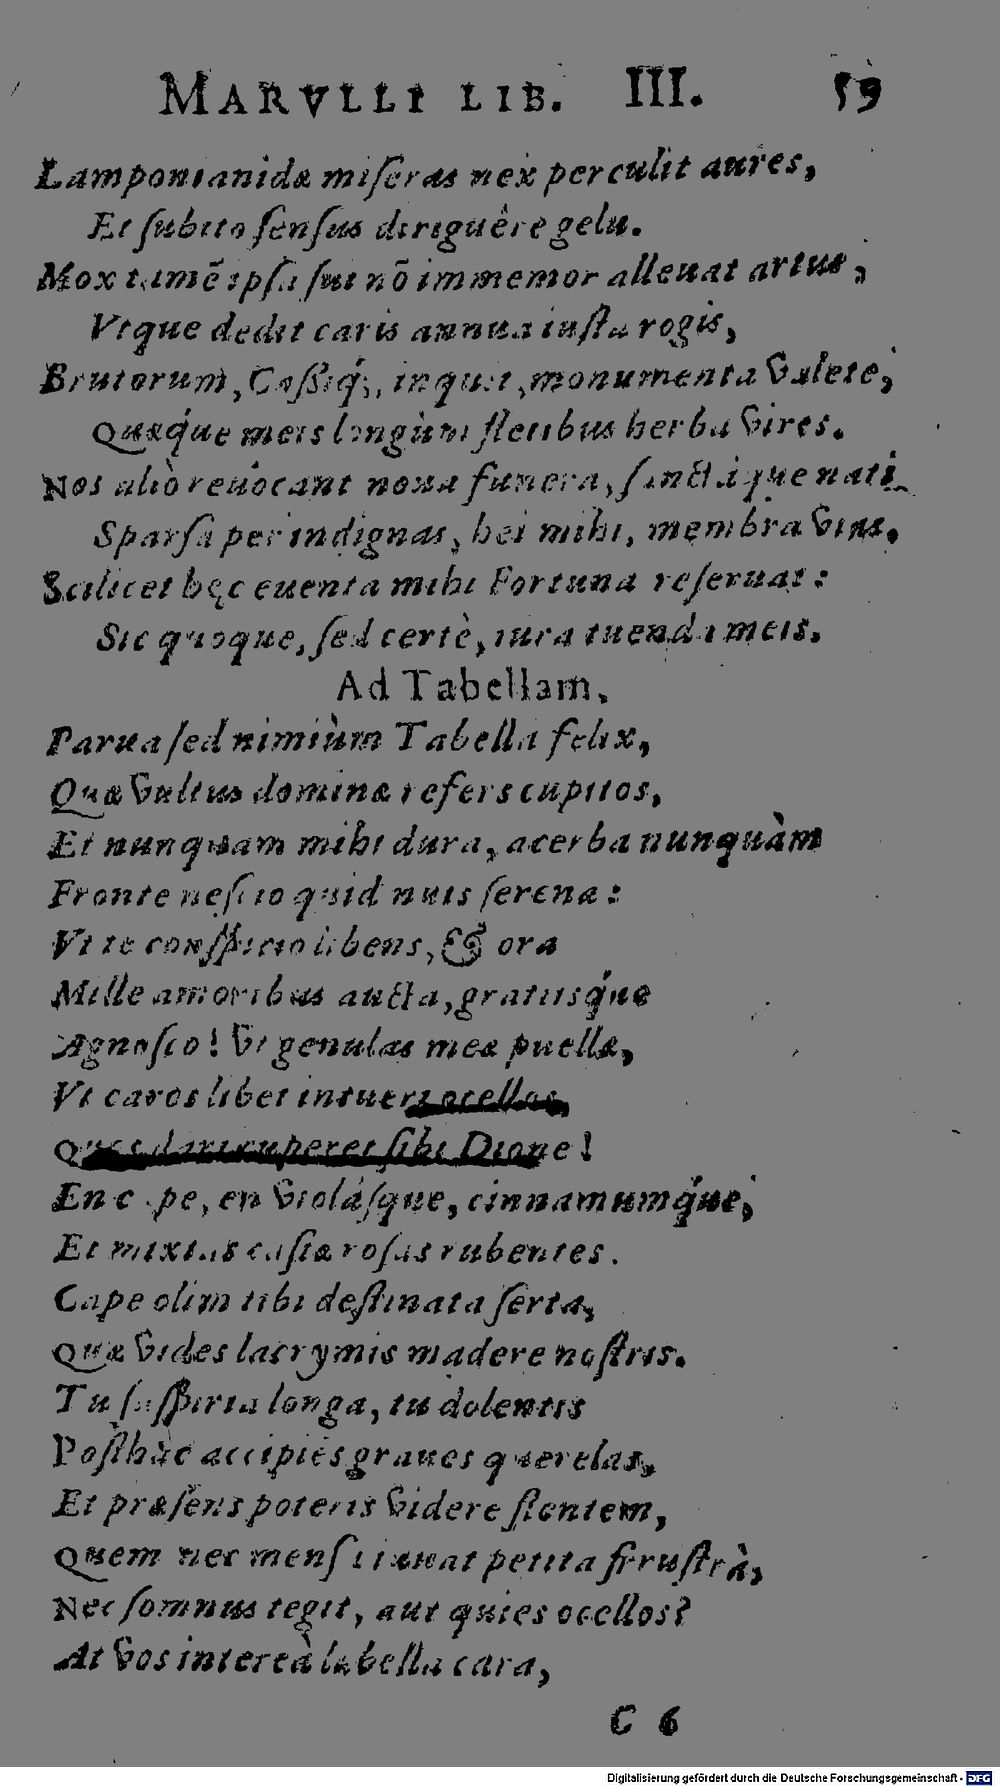 MARVLLI LIB. III. 59
Lamponianidæ miſeras nex perculit aures,
Et ſubito ſenſus diriguêre gelu.
Mox tamē ipſa ſui nō immemor alleuat artus,
Vtque dedit caris annua iuſta rogis,
Brutorum, Caßiq́;, inquit, monumenta valete,
Quæq́ue meis longùm fletibus herba vires.
Nos aliò reuocant noua funera, ſanctáque nati
Sparſa per indignas, hei mihi, membra vias.
Scilicet hęc euenta mihi Fortuna reſeruat:
Sic quoque, ſed certè, iura tuenda meis.
Ad Tabellam.
Parua ſed nimiùm Tabella felix,
Quæ vultus dominæ refers cupitos,
Et nunquam mihi dura, acerba nunquàm
Fronte neſcio quid nuis ſerena:
Vt te conſpicio libens, & ora
Mille amoribus aucta, gratiisq́ue
Agnoſco! vt genulas meæ puellæ,
Vt caros libet intueri ocellos,
Quos dari cuperet ſibi Dione!
En cape, en violáſque, cinnamumq́ue,
Et mixtas caſiæ roſas rubentes.
Cape olim tibi deſtinata ſerta,
Quæ vides lacrymis madere noſtris.
Tu ſuſpiria longa, tu dolentis
Poſthàc accipies graues querelas,
Et præſens poteris videre flentem,
Quem nec menſa iuuat petita fruſtrà,
Nec ſomnus tegit, aut quies ocellos?
At vos intereà labella cara,
C 6
Digitalisierung gefördert durch die Deutsche Forschungsgemeinschaft - DFG